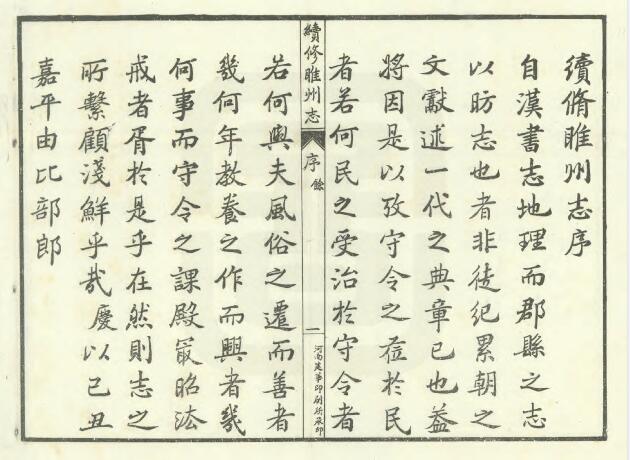 續脩睢州志序
自漢書志地理而郡縣之志
以昉志也者非徒紀累朝之
文獻述一代之典章已也蓋
將因是以攷守令之蒞於民
者若何民之受治於守令者
續修睢州志
序
餘
一
河南建華印刷所承印
若何與夫風俗之遷而善者
幾何年教養之作而興者幾
何事而守令之課殿最昭法
戒者胥於是乎在然則志之
所繫顧淺鮮乎哉慶以己丑
嘉平由比部郎